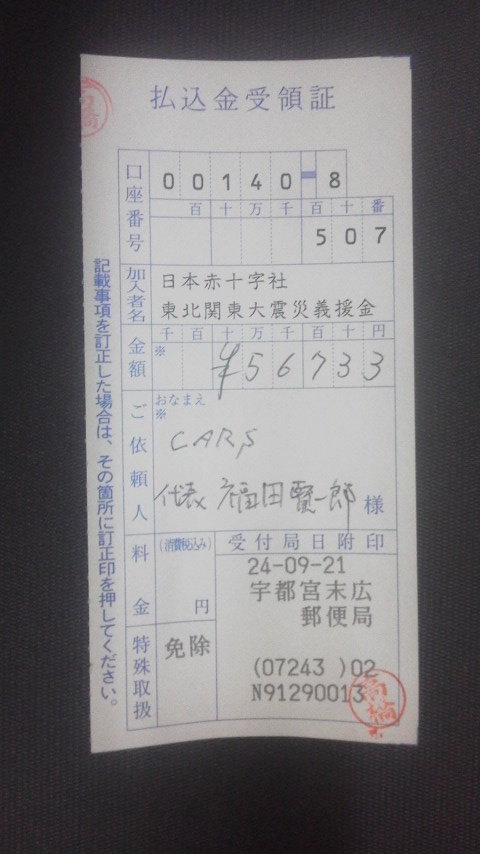 払込金受領証
口座番号
00140-8
百十万千百十番
507
加入者名
日本赤十字社
東北関東大震災義援金
金額
千百十万千百十円
※
¥56733
ご依頼人
おなまえ
※
CARS
代表 福田賢一郎 様
料金
(消費税込み)
円
特殊取扱
免除
受付局日附印
24-09-21
宇都宮末広
郵便局
(07243 )02
N91290013
記載事項を訂正した場合は、その箇所に訂正印を押してください。